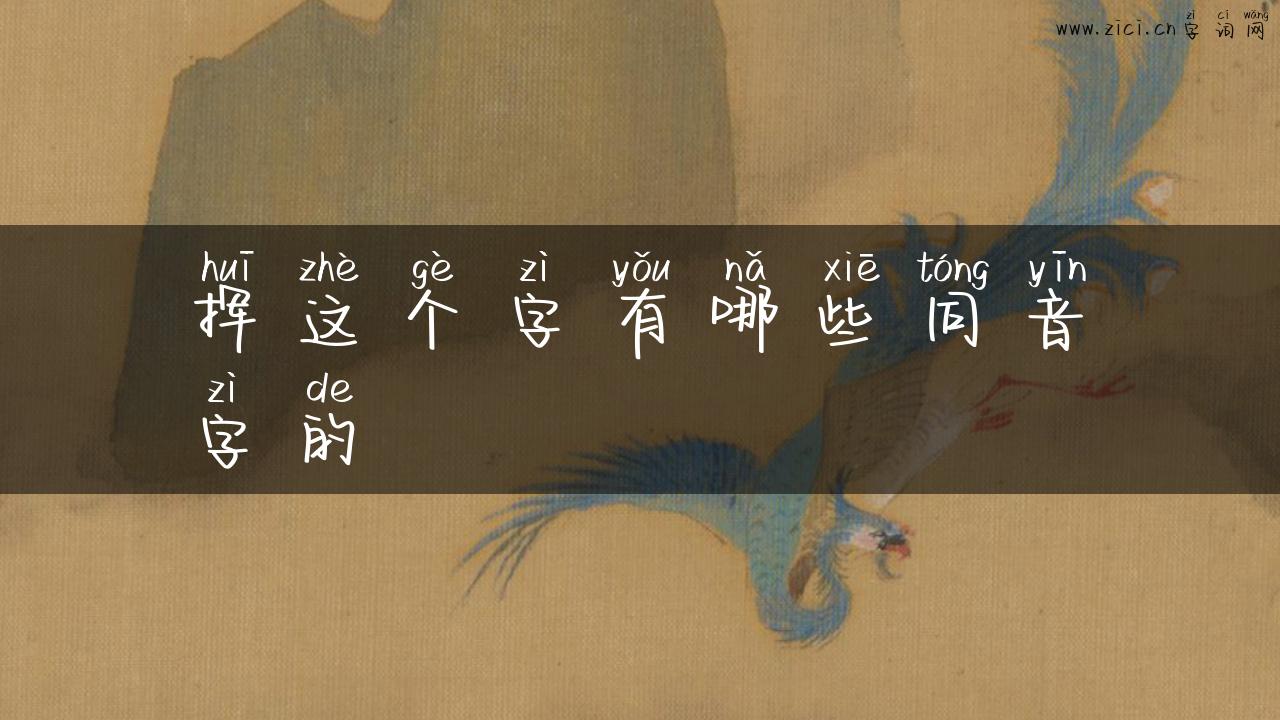 zì cí wǎng
www.zici.cn 字词网
huī zhè gè zì yǒu nǎ xiē tóng yīn
挥这个字有哪些同音
zì de
字的